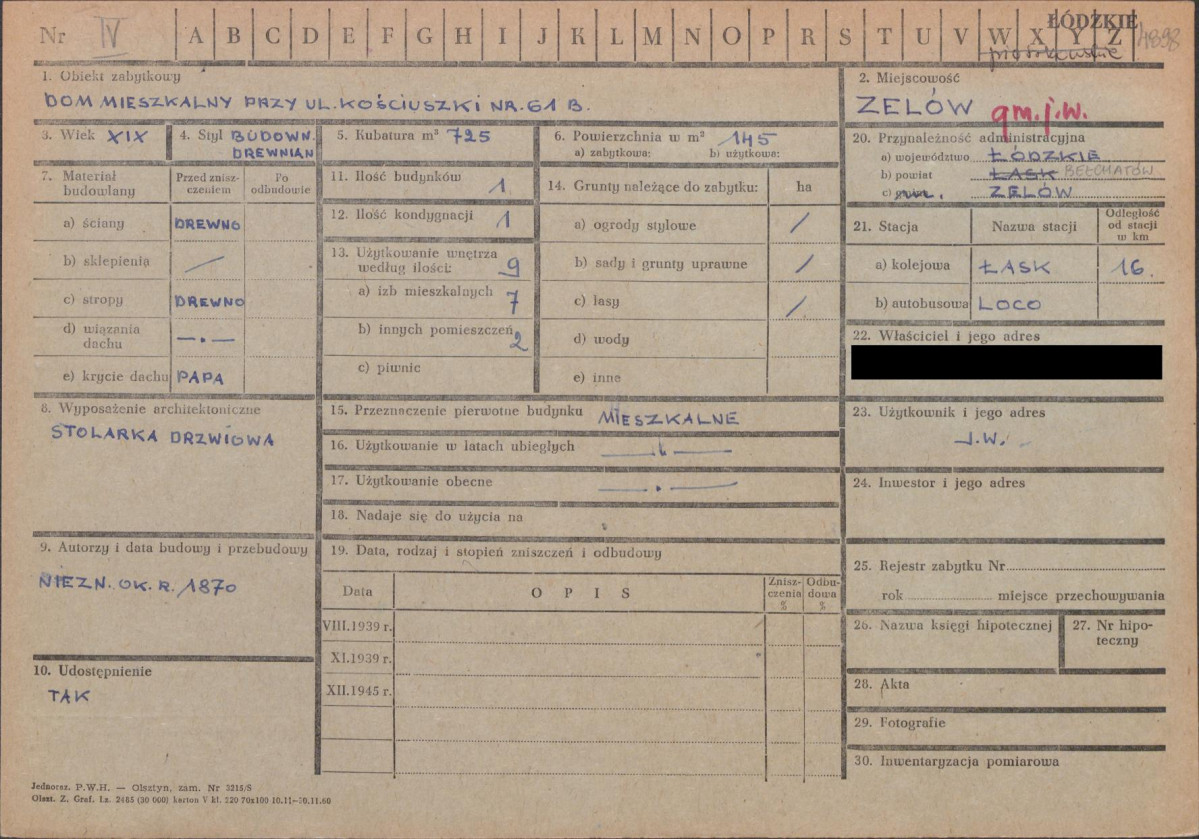 Nr IV A B C D E F G H I J K L M N O P R S T U V W X Y Z ŁÓDZKIE
piotrkowskie 4898
1. Obiekt zabytkowy
DOM MIESZKALNY PRZY UL. KOŚCIUSZKI NR. 61 B.
2. Miejscowość
ZELÓW gm. j.w.
3. Wiek XIX
4. Styl BUDOWN.
DREWNIAN
5. Kubatura m³ 725
6. Powierzchnia w m² 145
a) zabytkowa: b) użytkowa:
7. Materiał budowlany
Przed zniszczeniem
Po odbudowie
a) ściany DREWNO
b) sklepienia /
c) stropy DREWNO
d) wiązania dachu —.—
e) krycie dachu PAPA
8. Wyposażenie architektoniczne
STOLARKA DRZWIOWA
9. Autorzy i data budowy i przebudowy
NIEZN. OK. R. 1870
10. Udostępnienie
TAK
11. Ilość budynków 1
12. Ilość kondygnacji 1
13. Użytkowanie wnętrza
według ilości: 9
a) izb mieszkalnych 7
b) innych pomieszczeń 2
c) piwnic
14. Grunty należące do zabytku: ha
a) ogrody stylowe /
b) sady i grunty uprawne /
c) lasy /
d) wody
e) inne
15. Przeznaczenie pierwotne budynku MIESZKALNE
16. Użytkowanie w latach ubiegłych — " —
17. Użytkowanie obecne — . —
18. Nadaje się do użycia na
19. Data, rodzaj i stopień zniszczeń i odbudowy
Data O P I S Zniszczenia % Odbudowa %
VIII.1939 r.
XI.1939 r.
XII.1945 r.
20. Przynależność administracyjna
a) województwo ŁÓDZKIE
b) powiat ŁASK BEŁCHATÓW
c) gmina m. ZELÓW
21. Stacja Nazwa stacji Odległość od stacji w km
a) kolejowa ŁASK 16.
b) autobusowa LOCO
22. Właściciel i jego adres
23. Użytkownik i jego adres
J.W.
24. Inwestor i jego adres
25. Rejestr zabytku Nr
rok miejsce przechowywania
26. Nazwa księgi hipotecznej
27. Nr hipoteczny
28. Akta
29. Fotografie
30. Inwentaryzacja pomiarowa
Jednoraz. P.W.H. — Olsztyn, zam. Nr 3215/S
Olszt. Z. Graf. Lz. 2485 (30 000) karton V kl. 220 70x100 10.11—30.11.60